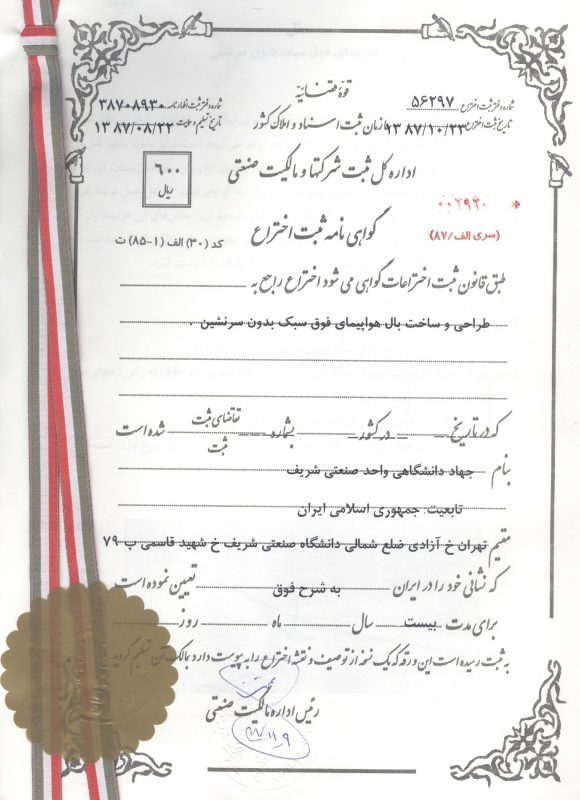 قوه قضائیه
شماره دفتر ثبت اختراع ۵۶۲۹۷
شماره دفتر ثبت اظهارنامه ۳۸۷۰۸۹۳۰
تاریخ ثبت اختراع ۱۳۸۷/۱۰/۲۳
سازمان ثبت اسناد و املاک کشور
تاریخ تسلیم و ۱۳۸۷/۰۸/۲۲
اداره کل ثبت شرکتها و مالکیت صنعتی
۶۰۰
ریال
* ۰۰۲۹۴۰
(سری الف/۸۷)
گواهی نامه ثبت اختراع
کد (۳۰) الف (۱-۸۵) ت
طبق قانون ثبت اختراعات گواهی می شود اختراع راجع به
طراحی و ساخت بال هواپیمای فوق سبک بدون سرنشین .
که در تاریخ در کشور بشماره تقاضای ثبت شده است
ثبت
بنام جهاد دانشگاهی واحد صنعتی شریف
تابعیت: جمهوری اسلامی ایران
مقیم تهران خ آزادی ضلع شمالی دانشگاه صنعتی شریف خ شهید قاسمی پ ۷۹
که نشانی خود را در ایران به شرح فوق تعیین نموده است
برای مدت بیست سال ماه روز
به ثبت رسیده است این ورقه که یک نسخه از توصیف و نقشه اختراع را به پیوست دارد بمالک آن تسلیم گردید
رئیس اداره مالکیت صنعتی